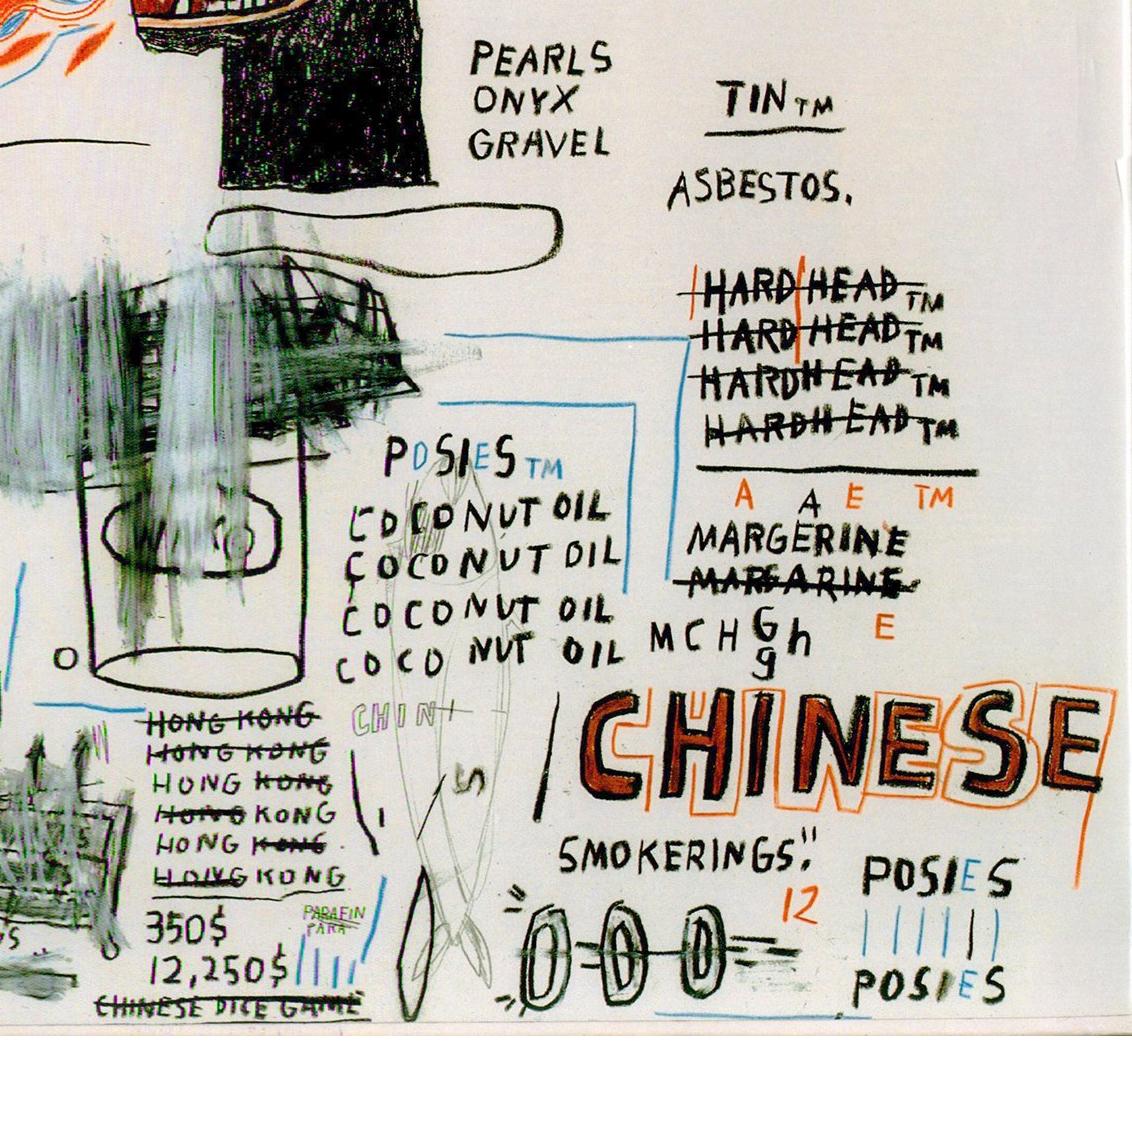 PEARLS
ONYX
GRAVEL
TIN TM
ASBESTOS.
HARD HEAD TM
HARD HEAD TM
HARDHEAD TM
HARDHEAD TM
POSIES TM
COCONUT OIL
COCONUT OIL
COCONUT OIL
COCO NUT OIL
A A E TM
MARGERINE
MARGARINE
E
MCHGh
g
O
HONG KONG
HONG KONG
HONG KONG
HONG KONG
HONG KONG
HONG KONG
350$
12,250$
CHINESE DICE GAME
PARAFIN
PARA
CHIN
S
CHINESE
SMOKERINGS."
12
POSIES
POSIES